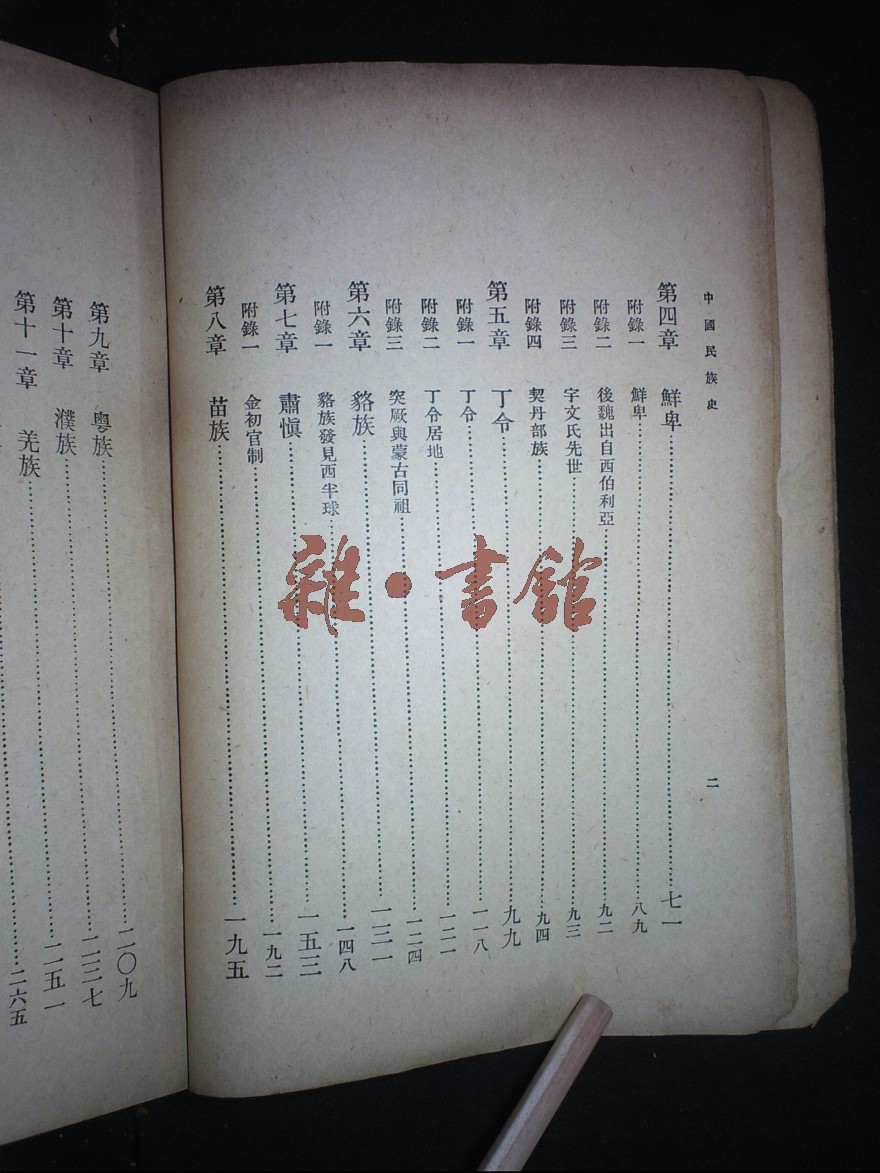 中國民族史
二
第四章 鮮卑……七一
附錄一 鮮卑……八九
附錄二 後魏出自西伯利亞……九二
附錄三 宇文氏先世……九三
附錄四 契丹部族……九四
第五章 丁令……九九
附錄一 丁令……一一八
附錄二 丁令居地……一二一
附錄三 突厥與蒙古同祖……一二四
第六章 貉族……一三一
附錄一 貉族發見西半球……一四八
第七章 肅愼……一五三
附錄一 金初官制……一九二
第八章 苗族……一九五
第九章 粵族……二〇九
第十章 濮族……二三七
第十一章 羌族……二五一
二六五
雜·書館